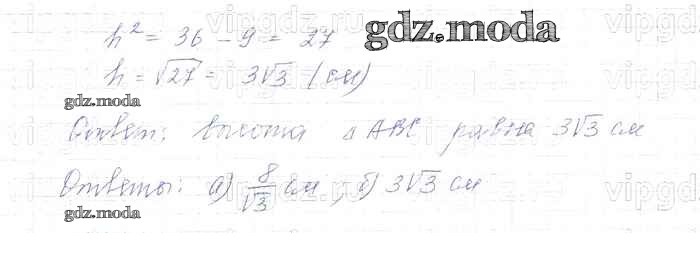 h² = 36 - 9 = 27
gdz.moda
h = √27 = 3√3 (см)
gdz.moda
Ответ: высота △ABC равна 3√3 см
Ответы: а) 8/√3 см, б) 3√3 см
gdz.moda